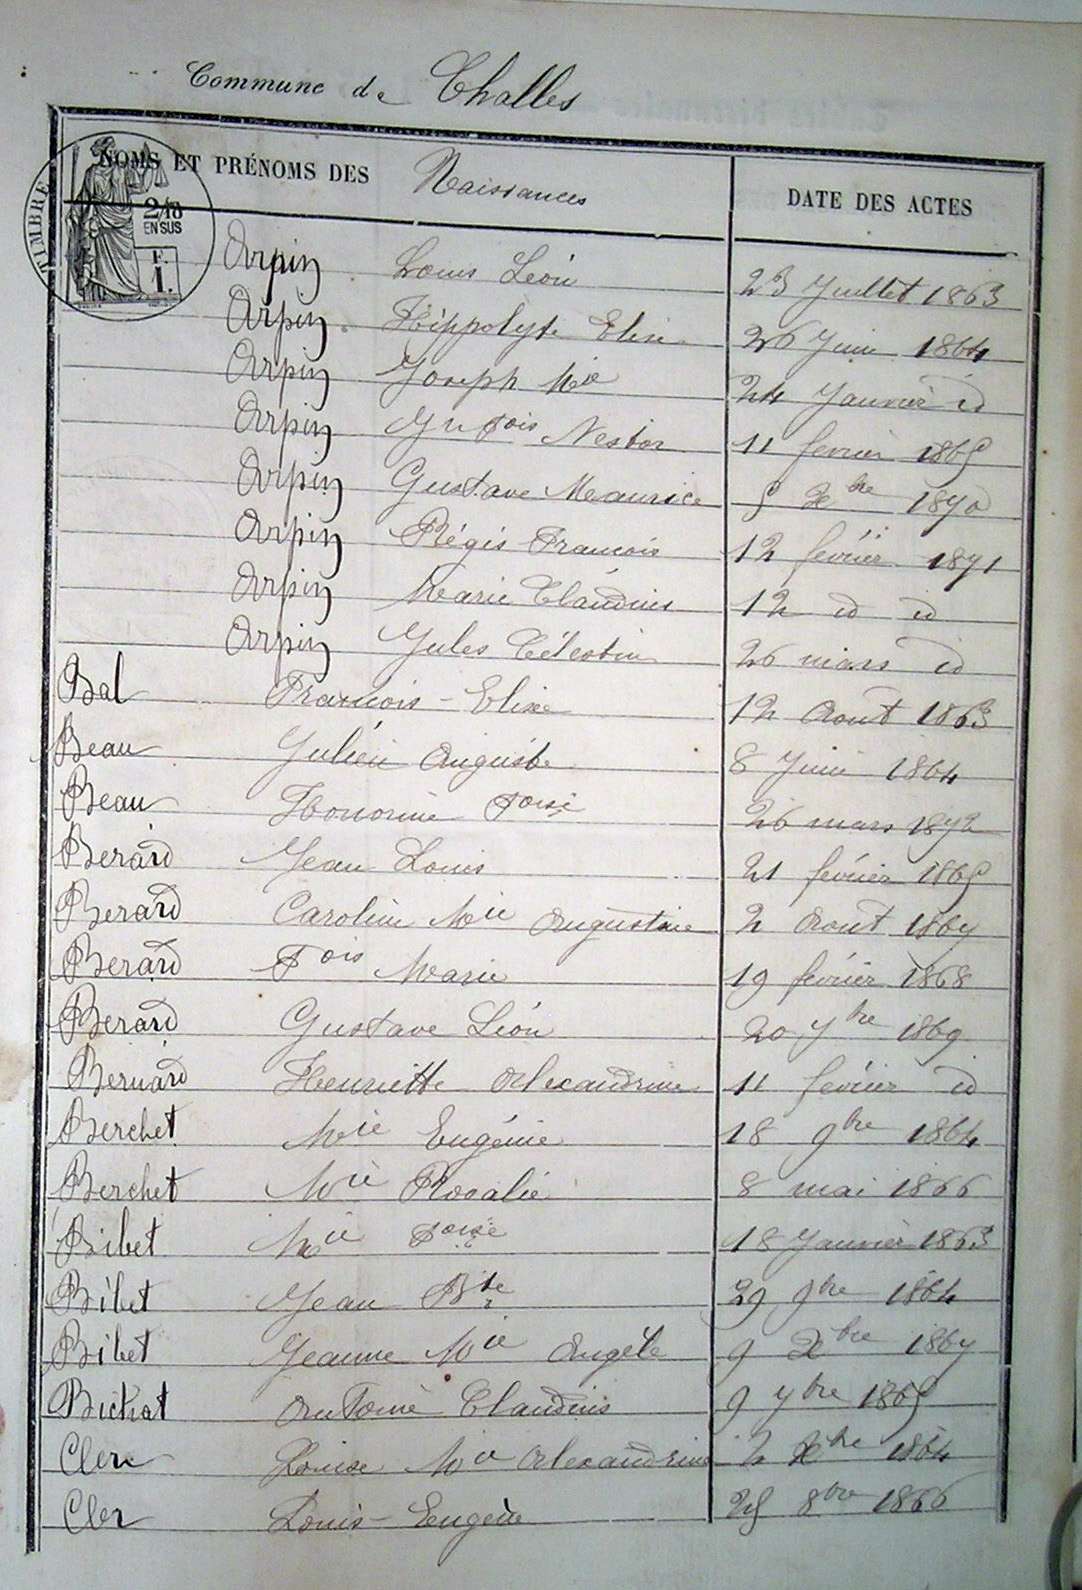 Commune de Challes
NOMS ET PRÉNOMS DES Naissances DATE DES ACTES
TIMBRE
2/10
EN SUS
F.
1.
Arpin Louis Léon 23 Juillet 1863
Arpin Hippolyte Elisé 26 Juin 1864
Arpin Joseph Mie 24 Janvier id
Arpin Fois Nestor 11 fevrier 1865
Arpin Gustave Maurice 5 Xbre 1870
Arpin Régis Francois 12 février 1871
Arpin Marie Claudius 12 id id
Arpin Jules Célestin 26 mars id
Bal Francois - Elisée 12 Aout 1863
Beau Julien Auguste 8 Juin 1864
Beau Honorine Foise 26 mars 1872
Berard Jean Louis 21 février 1865
Berard Caroline Mie Augustine 2 Aout 1867
Berard Fois Marie 19 février 1868
Berard Gustave Léon 20 7bre 1869
Bernard Henriette Alexandrine 11 février id
Berchet Mie Eugénie 18 9bre 1864
Berchet Mie Rosalie 8 mai 1866
Bibet Mie Foise 18 Janvier 1863
Bibet Jean Bte 29 9bre 1864
Bibet Jeanne Mie Angèle 9 Xbre 1867
Bichat Antoine Claudius 9 7bre 1865
Clerc Louise Mie Alexandrine 2 Xbre 1864
Cler Louis - Eugène 25 8bre 1866